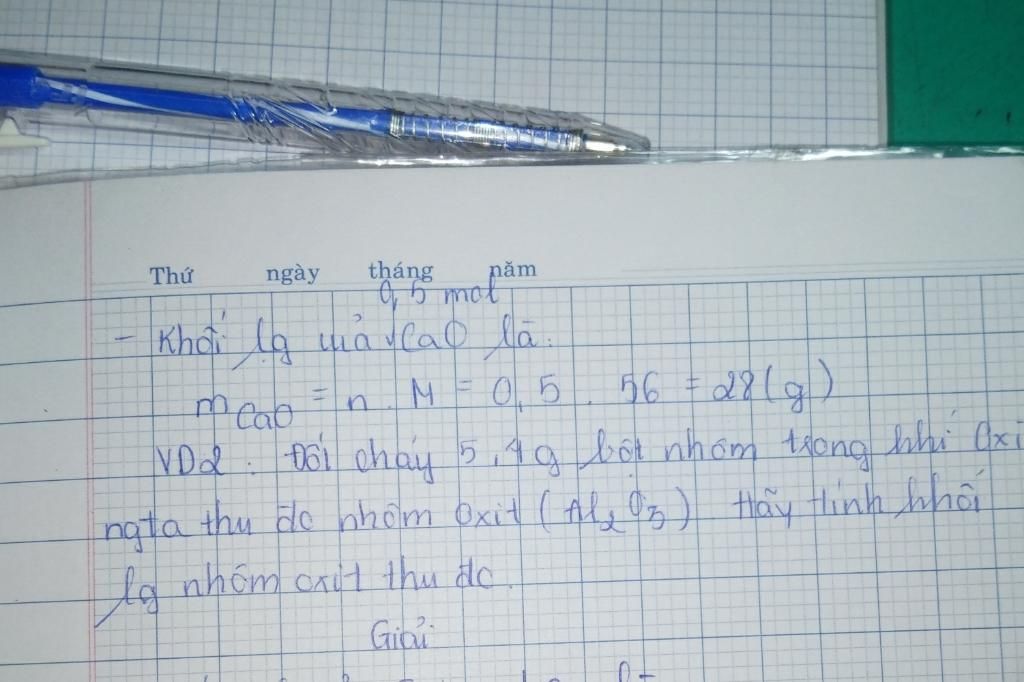 Thứ ngày tháng năm
0,5 mol
- Khối lg của CaO là:
mCaO = n. M = 0,5 . 56 = 28(g)
VD2: Đốt cháy 5,4g bột nhôm trong khí Oxi
ngta thu đc nhôm Oxit (Al₂O₃) Hãy tính khối
lg nhôm oxit thu đc.
Giải